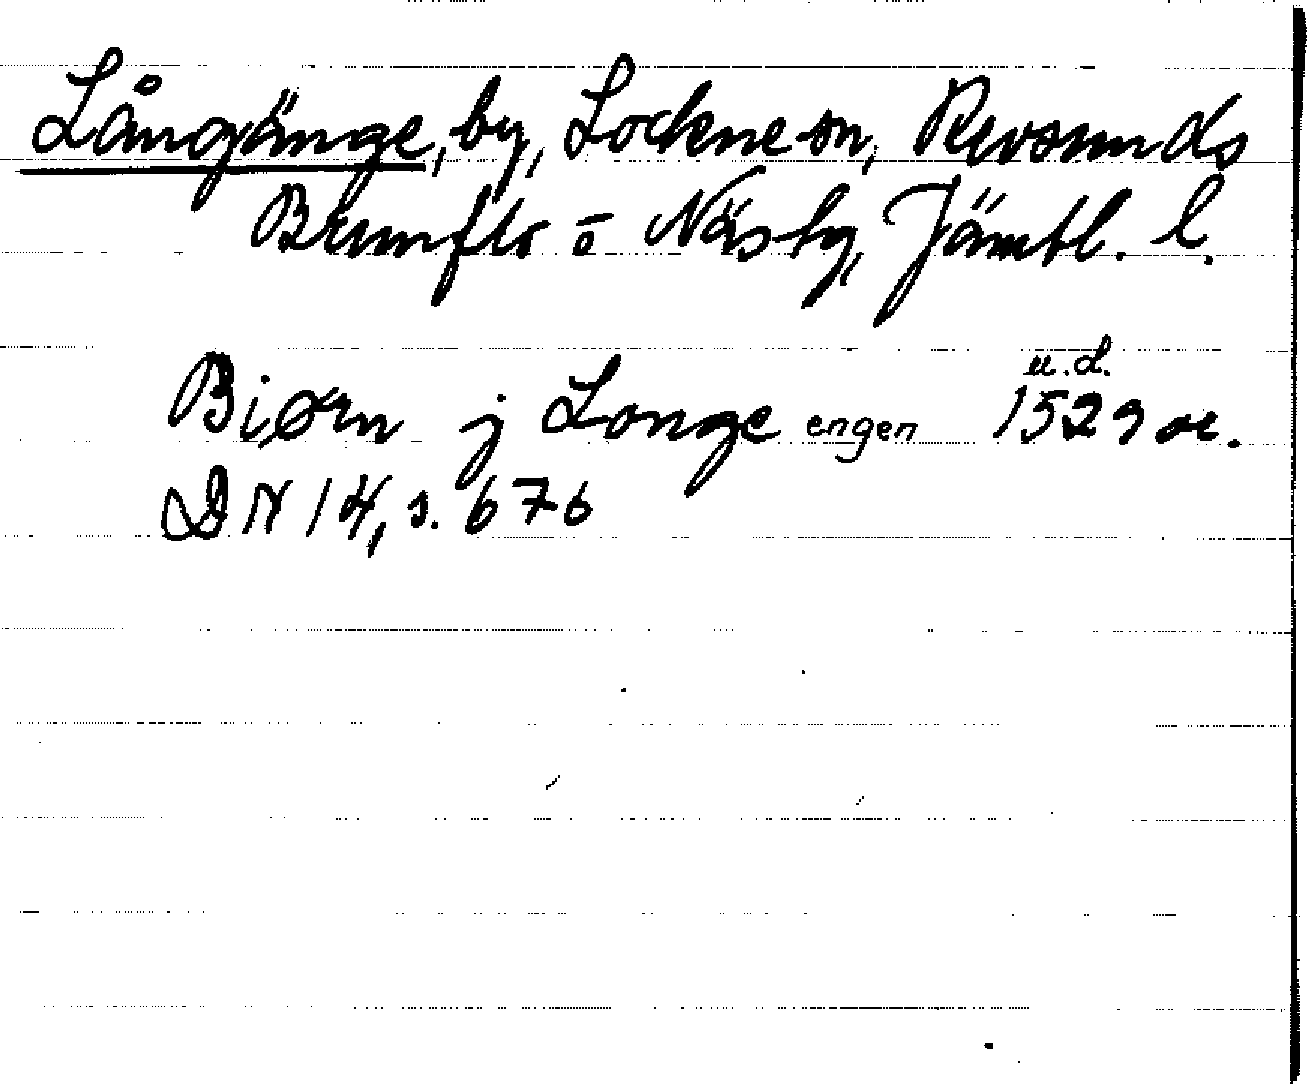 Långänge, by, Lockne sn, Revsunds
Brunflo o Näs tg, Jämtl. l.
u.d.
Biørn j Longe engen 1529 or.
DN 14, s. 676